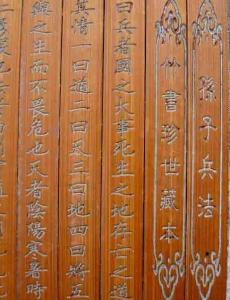 孫子兵法
竹書珍世藏本
曰兵者國之大事死生之地存亡之道
其情一曰道二曰天三曰地四曰將五
之生而不畏危也天者陰陽寒暑時